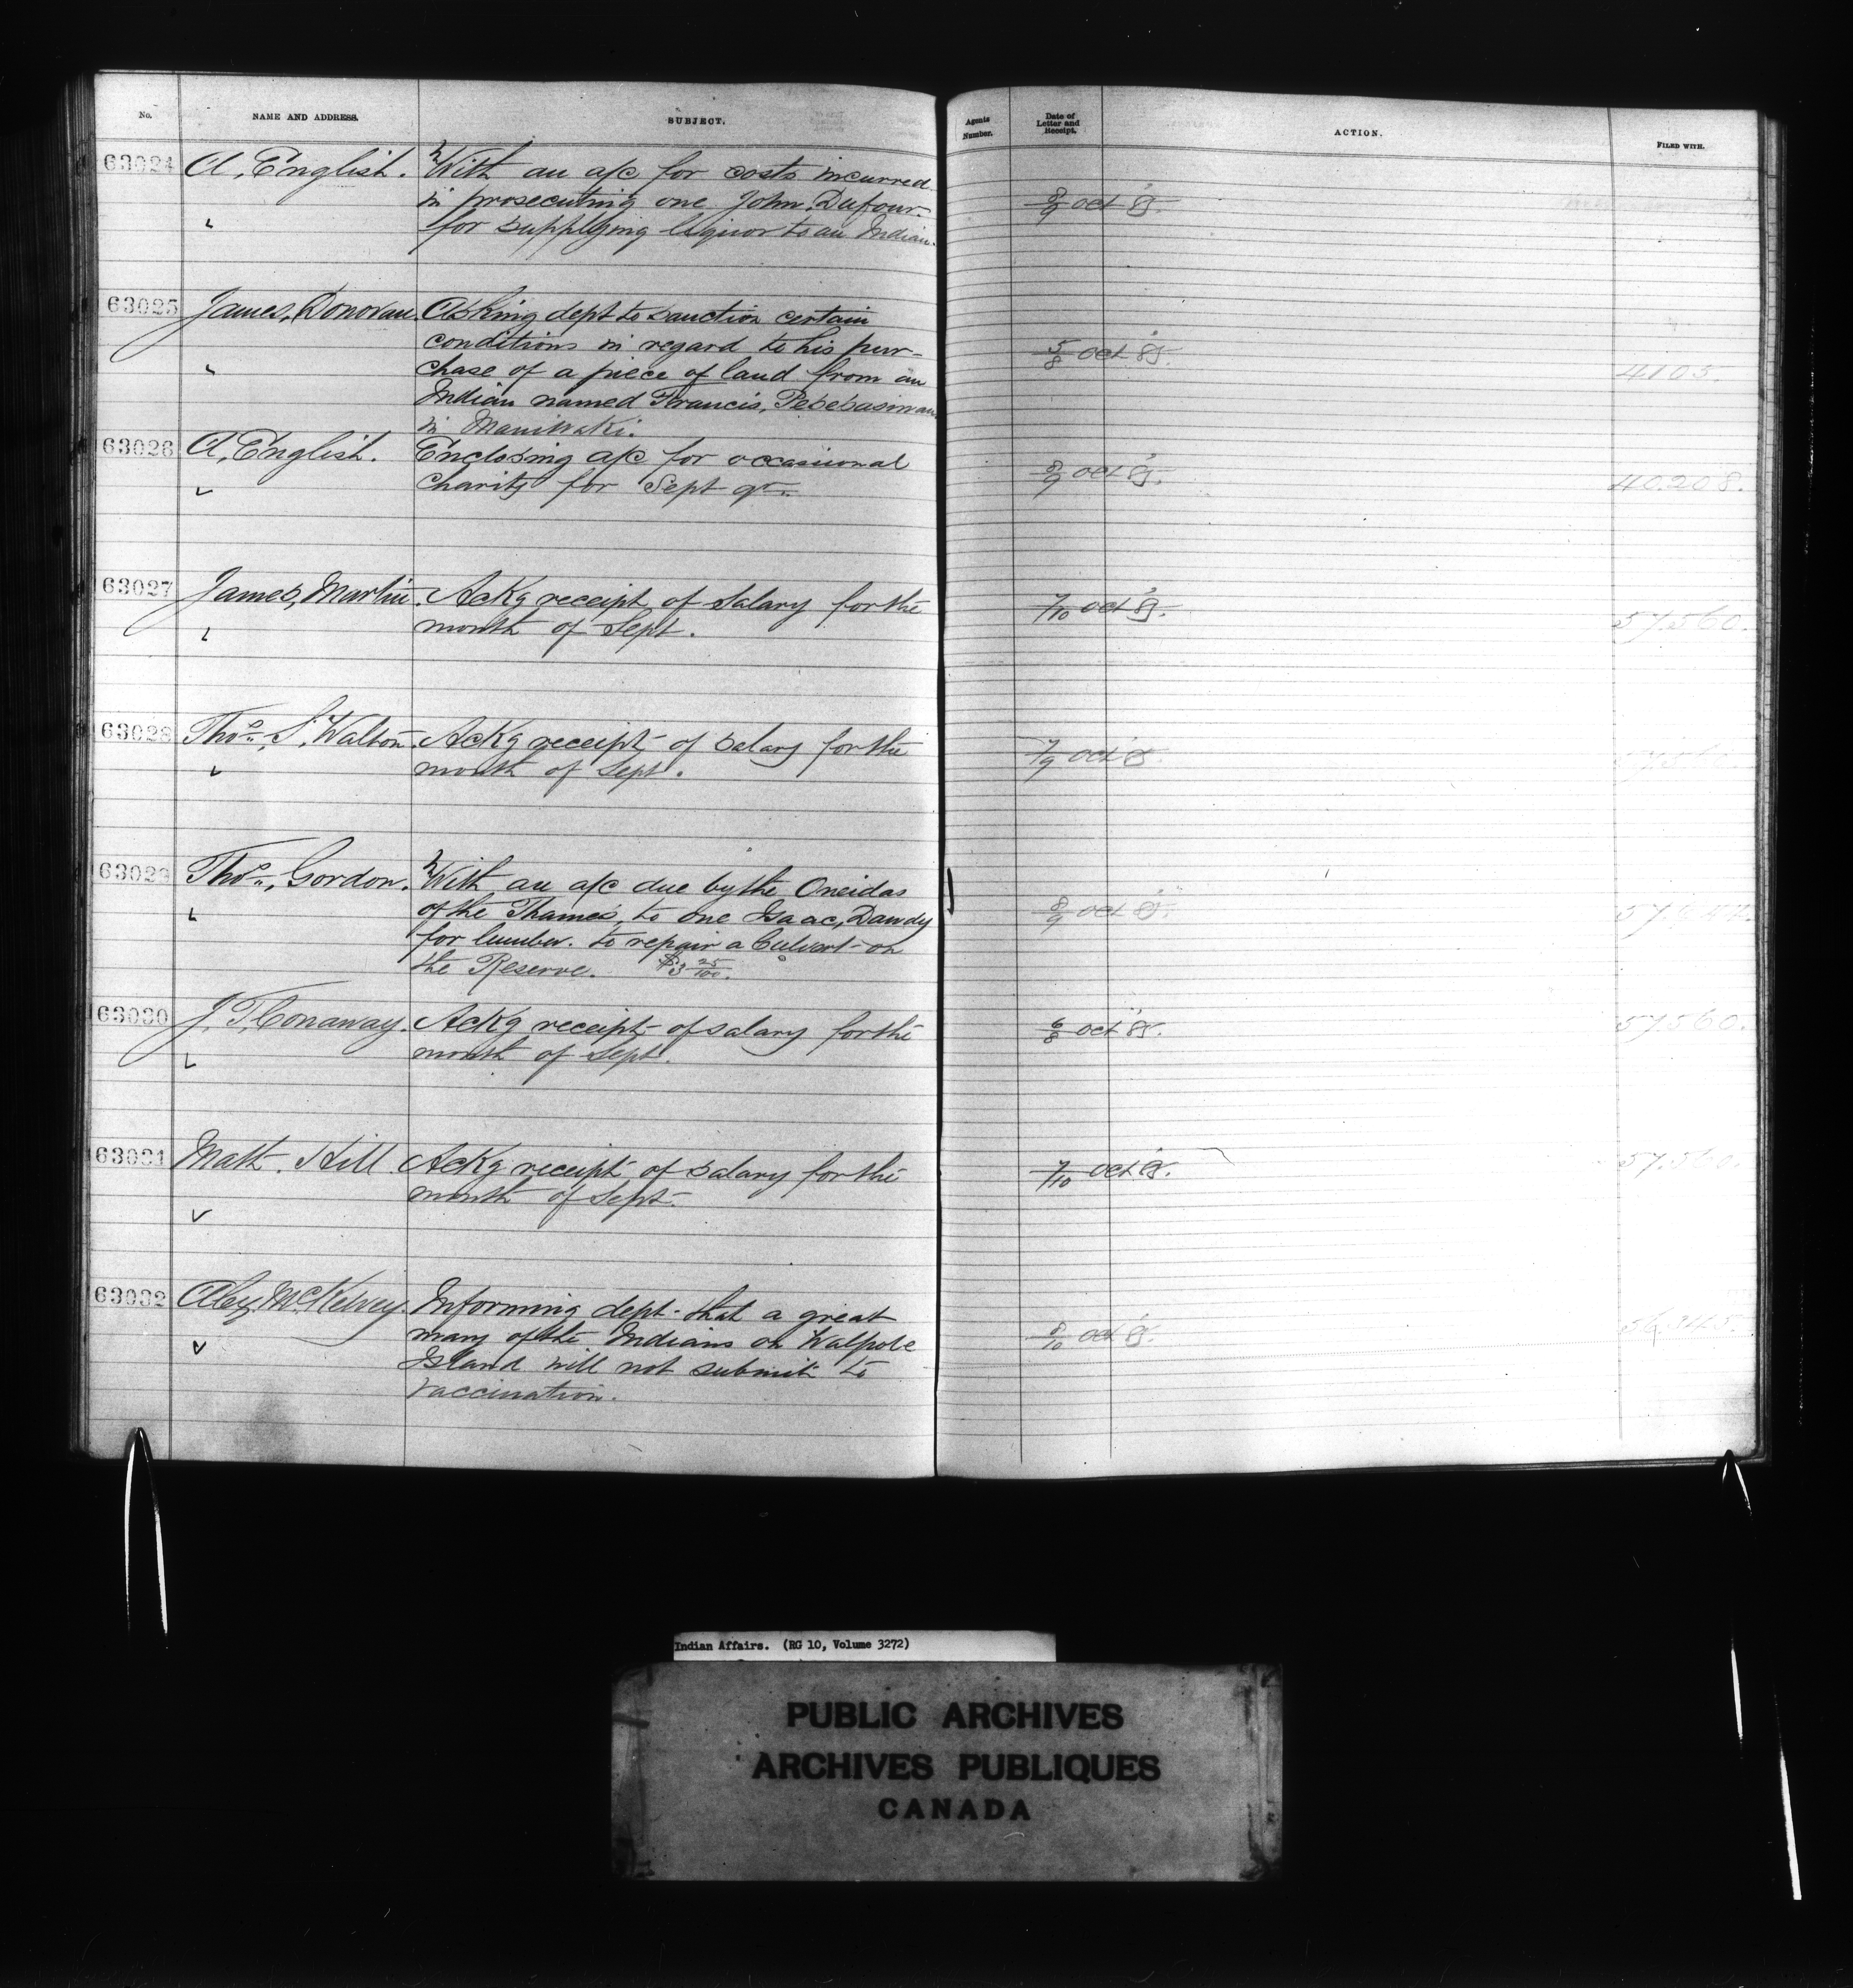 No. NAME AND ADDRESS. SUBJECT. Agents Number. Date of Letter and Receipt. ACTION. FILED WITH.
63024 A. English. With an a/c for costs incurred
in prosecuting one John, Dufour
for supplying liquor to an Indian.
8/9 Oct 85.
63025 James, Donovan. Asking dept to sanction certain
conditions in regard to his pur-
chase of a piece of land from an
Indian named Francis,
in Maniwaki.
5/8 Oct 85. 4105.
63026 A, English. Enclosing a/c for occassional
charity for Sept qr.
8/9 Oct 85. 40.208.
63027 James, Martin. Ackg receipt of Salary for the
month of Sept.
7/10 Oct 85. 57.560.
63028 Thos., S. Walton. Ackg receipt of salary for the
month of Sept.
7/9 Oct 85. 57.560.
63029 Thos., Gordon. With an a/c due by the Oneidas
of the Thames, to one Isaac, Dawdy
for lumber. to repair a Culvert on
the Reserve. $3 25/100.
8/9 Oct 85.
63030 J. T. Conaway. Ackg receipt of salary for the
month of Sept.
6/8 Oct 85. 57560.
63031 Matt. Hill Ackg receipt of salary for the
month of Sept.
7/10 Oct 85. 57.560.
63032 Alex, McKelvey. Informing dept. that a great
many of the Indians on Walpole
Island will not submit to
vaccination.
8/10 Oct 85.
Indian Affairs. (RG 10, Volume 3272)
PUBLIC ARCHIVES
ARCHIVES PUBLIQUES
CANADA